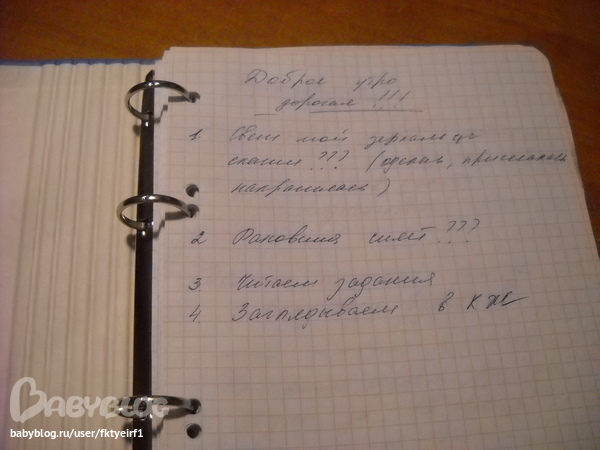 Доброе утро
дорогая !!!
1. Свет мой зеркальце
скажи ??? (оделась, причесалась
накрасилась)
2 Раковина сияет ???
3. Читаем задания
4. Заглядываем в КЖ
BABYBLOG
babyblog.ru/user/fktyeirf1